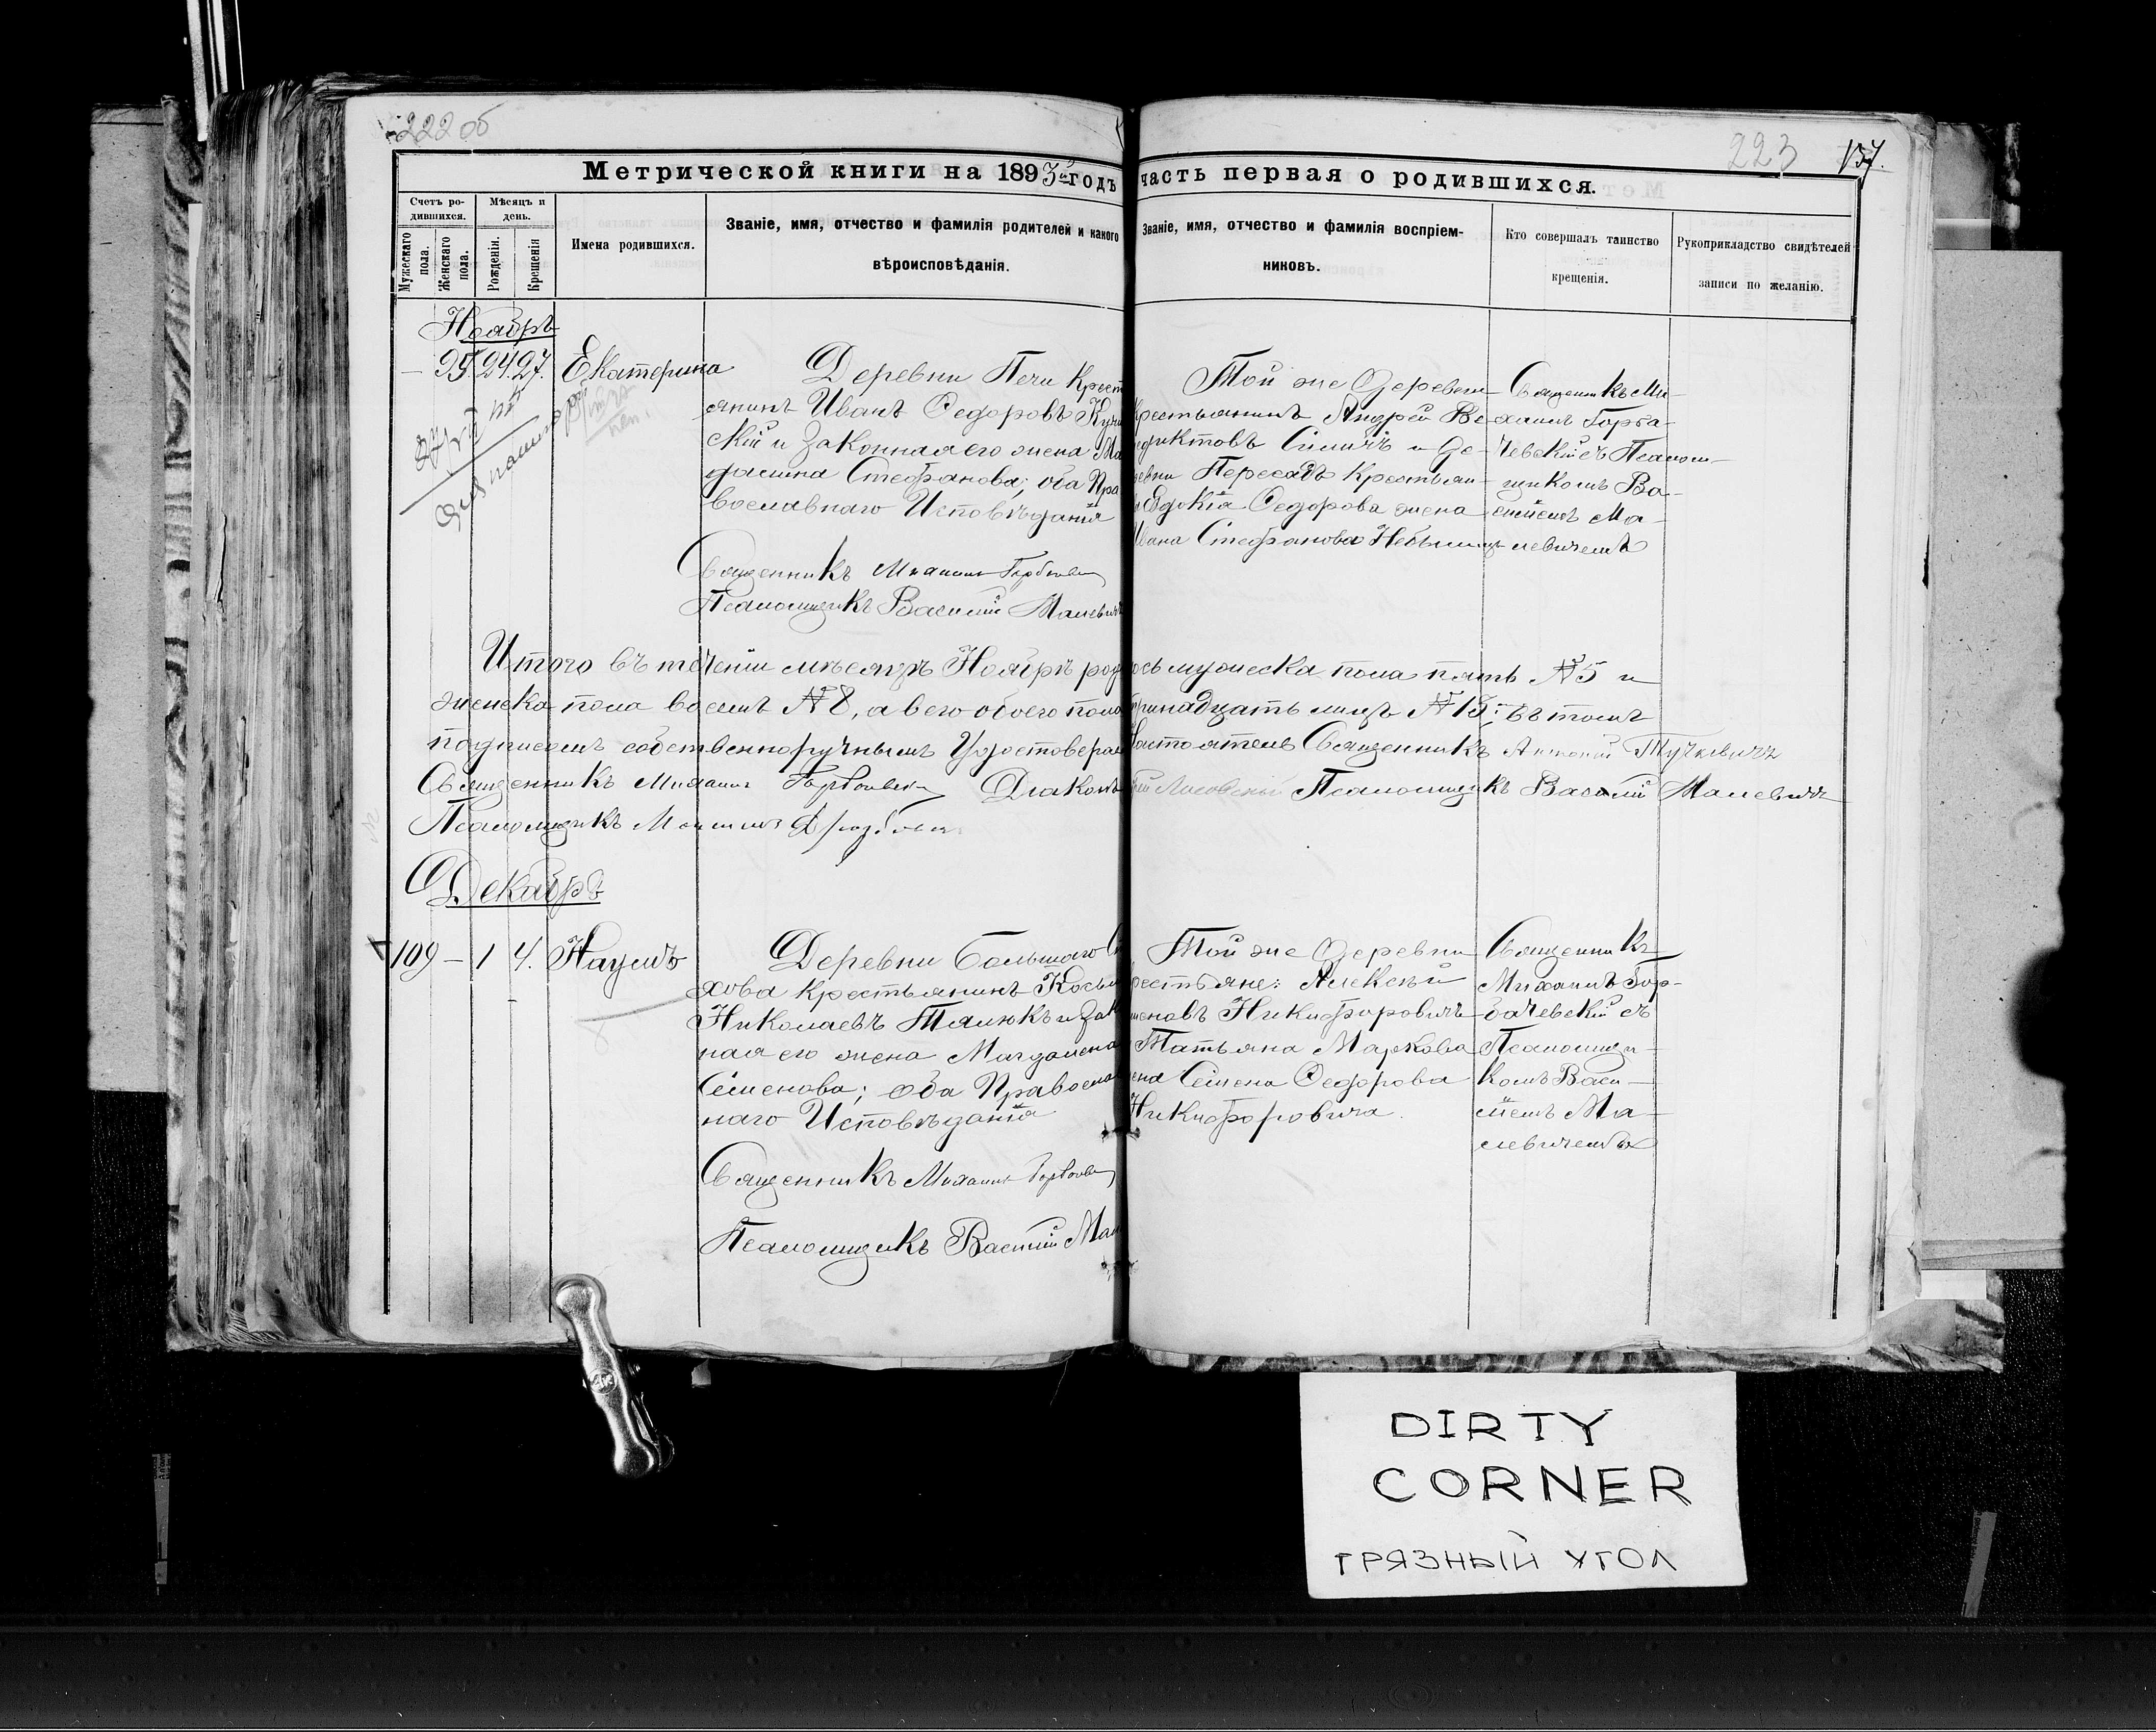 222 об
223
157.
Метрической книги на 1893й годъ часть первая о родившихся.
Счетъ родившихся.
Мужескаго пола.
Женскаго пола.
Мѣсяцъ и день.
Рожденія.
Крещенія
Имена родившихся.
Званіе, имя, отчество и фамилія родителей и какого
вѣроисповѣданія.
Званіе, имя, отчество и фамилія воспріем-
никовъ.
Кто совершалъ таинство
крещенія.
Рукоприкладство свидѣтелей
записи по желанію.
Ноябрь
— 95. 24. 27. Екатерина
Деревни Печи Крест
янинъ Иванъ Федоровъ
скій и законная его жена Ма
далина Стефанова; оба Пра
вославнаго Исповѣданія
Священникъ Михаилъ
Псаломщикъ Василій Малевичъ
Той же Деревни
Крестьянинъ Андрей Ве
диктовъ и де-
ревни Пересадъ Крестьян-
Евдокія Федорова жена
Ивана Стефанова
Священникъ Ми-
хаилъ Горба-
чевскій съ Псалом-
щикомъ Ва-
силіемъ Ма-
левичемъ
Итого въ теченіи мѣсяца Ноября родилось мужеска пола пять №5 и
женска пола восемь №8, а всего обоего пола тринадцать лицъ №13; въ томъ
подписомъ собственноручнымъ Удостоверяемъ Настоятель Священникъ Антоній
Священникъ Михаилъ Діаконъ Псаломщикъ Василій Малевичъ
Псаломщикъ
Декабрь
109 — 1 4. Наумъ
Деревни Большаго
хова крестьянинъ Косьма
Николаевъ Талюкъ и зак
ная его жена Магдалена
Семенова; оба Правосла
наго Исповѣданія
Священникъ Михаилъ
Псаломщикъ Василій Мал
Той же Деревни
крестьяне: Алексѣй
Никифоровичъ
Татьяна Маркова
жена Семена Федорова
Никифоровича.
Священникъ
Михаилъ Гор-
бачевскій съ
Псаломщи-
комъ Васи-
ліемъ Ма-
левичемъ
DIRTY
CORNER
ГРЯЗНЫЙ УГОЛ